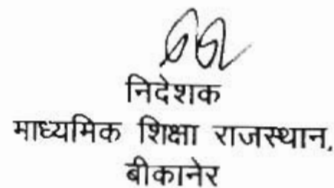 निदेशक
माध्यमिक शिक्षा राजस्थान,
बीकानेर